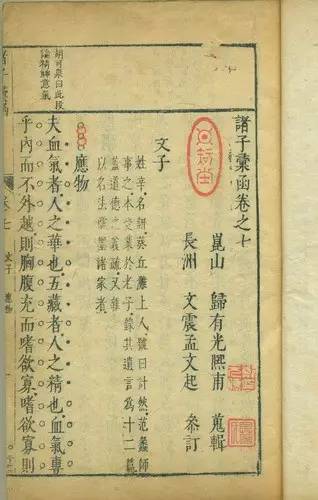 諸子彙函卷之七
崑山 歸有光熙甫 蒐輯
長洲 文震孟文起 參訂
文子
姓辛名鈃葵丘濮上人號曰計然范蠡師
事之本受業於老子錄其遺言為十二篇
蓋道德之義疏又雜
以名法儒墨諸家者
應物
夫血氣者人之華也五藏者人之精也血氣專
乎內而不外越則胸腹充而嗜欲寡嗜欲寡則
胡可泉曰此段
論精神意氣
諸子彙函
卷七 文子 應物